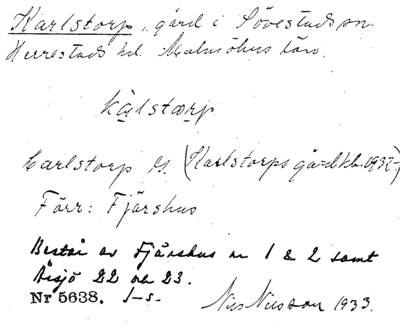 Karlstorp, gård i Sövestads sn.
Herrestads hd. Malmöhus län.
kālstærp
Carlstorp Eg. (Karlstorps gård kb. 1932-)
Förr: Fjärshus
Består av Fjärshus nr 1 & 2 samt
Årsjö 22 och 23.
Nr 5638. 1-s. Nils Nilsson 1933.